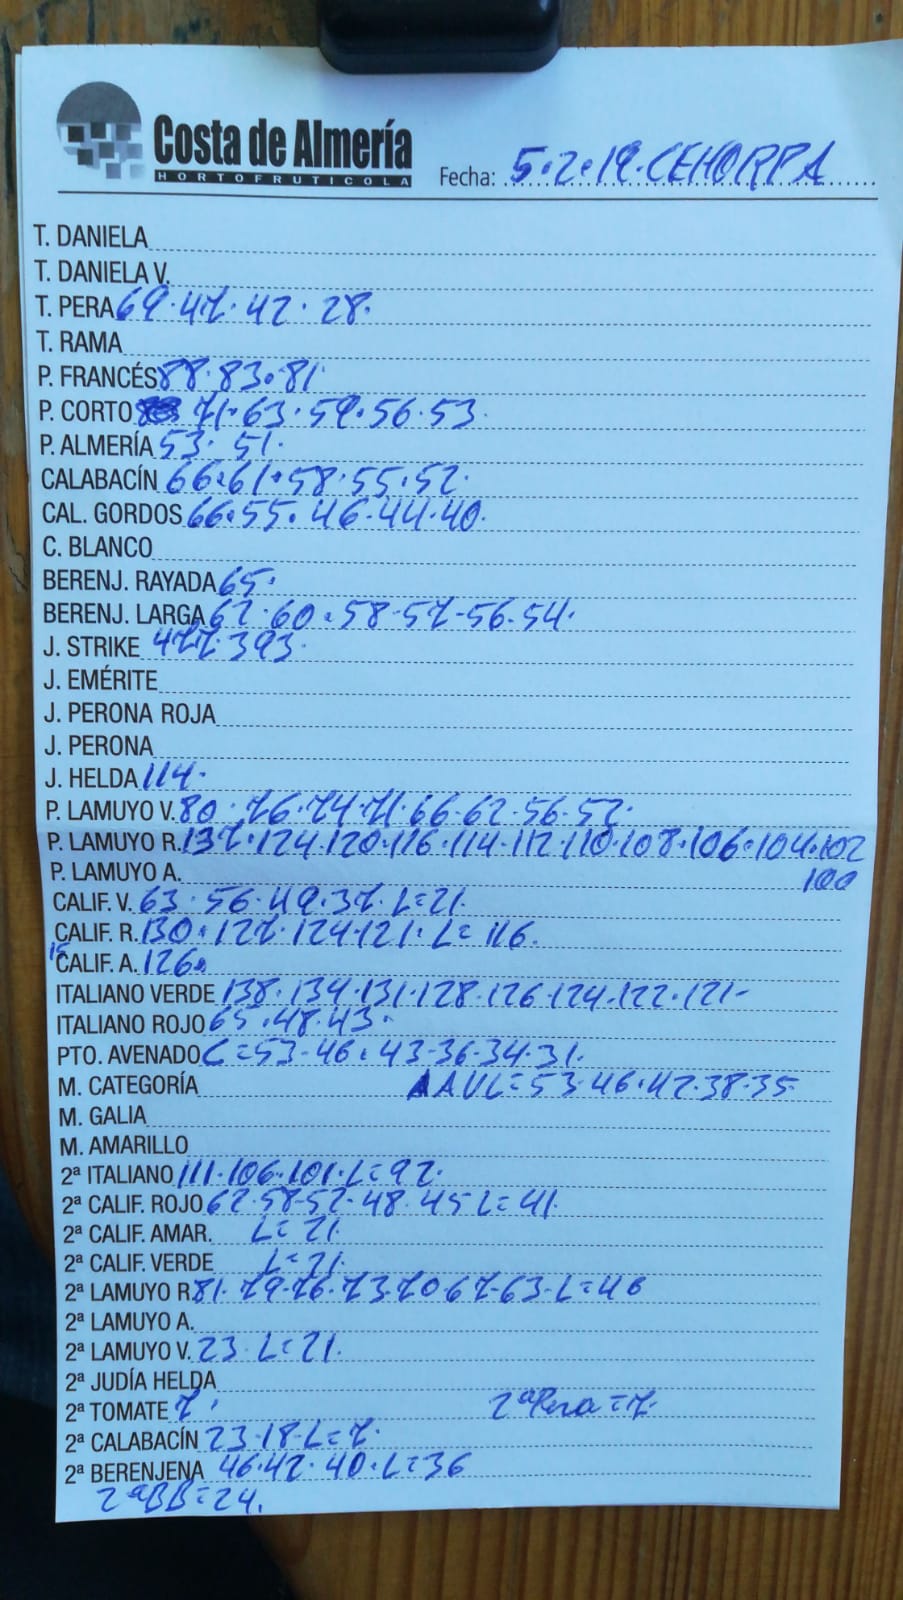 Costa de Almería
HORTOFRUTICOLA
Fecha: 5.2.19.CEHORPA
T. DANIELA
T. DANIELA V.
T. PERA 69.47.42.28.
T. RAMA
P. FRANCÉS 88.83.81
P. CORTO 71.63.59.56.53.
P. ALMERÍA 53.51.
CALABACÍN 66.61.58.55.52.
CAL. GORDOS 66.55.46.44.40.
C. BLANCO
BERENJ. RAYADA 65.
BERENJ. LARGA 62.60.58.57.56.54.
J. STRIKE 477.393.
J. EMÉRITE
J. PERONA ROJA
J. PERONA
J. HELDA 114.
P. LAMUYO V. 80.76.74.71.66.62.56.52.
P. LAMUYO R. 137.124.120.116.114.112.110.108.106.104.102
P. LAMUYO A. 100
CALIF. V. 63.56.49.37.L=21.
CALIF. R. 130.127.124.121.L=116.
CALIF. A. 126.
ITALIANO VERDE 138.134.131.128.126.124.122.121-
ITALIANO ROJO 65.48.43.
PTO. AVENADO C=53-46.43-36-34.31.
M. CATEGORÍA AVL=53.46.42.38.35
M. GALIA
M. AMARILLO
2ª ITALIANO 111.106.101.L=92.
2ª CALIF. ROJO 62.58-52-48.45 L=41.
2ª CALIF. AMAR. L=21.
2ª CALIF. VERDE L=21.
2ª LAMUYO R 81.79.76.73.70.67-63.L=46
2ª LAMUYO A.
2ª LAMUYO V. 23.L=21.
2ª JUDÍA HELDA
2ª TOMATE 7. 2ªPera=7.
2ª CALABACÍN 23.18-L=7.
2ª BERENJENA 46.42.40.L=36
2ªBB=24.